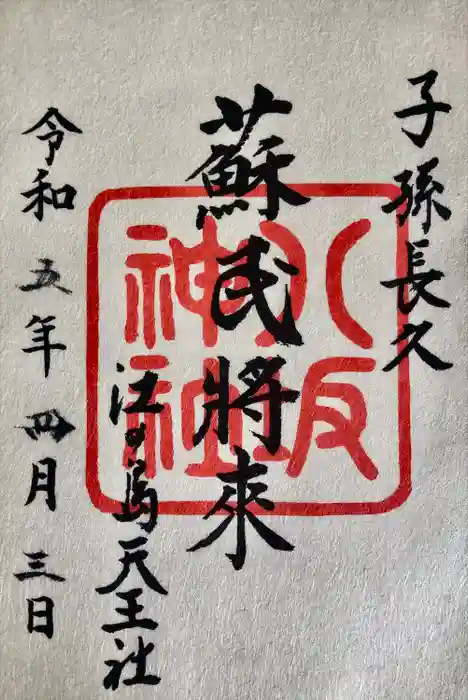 子孫長久
蘇民将来
八坂
神社
江の島天王社
令和五年四月三日